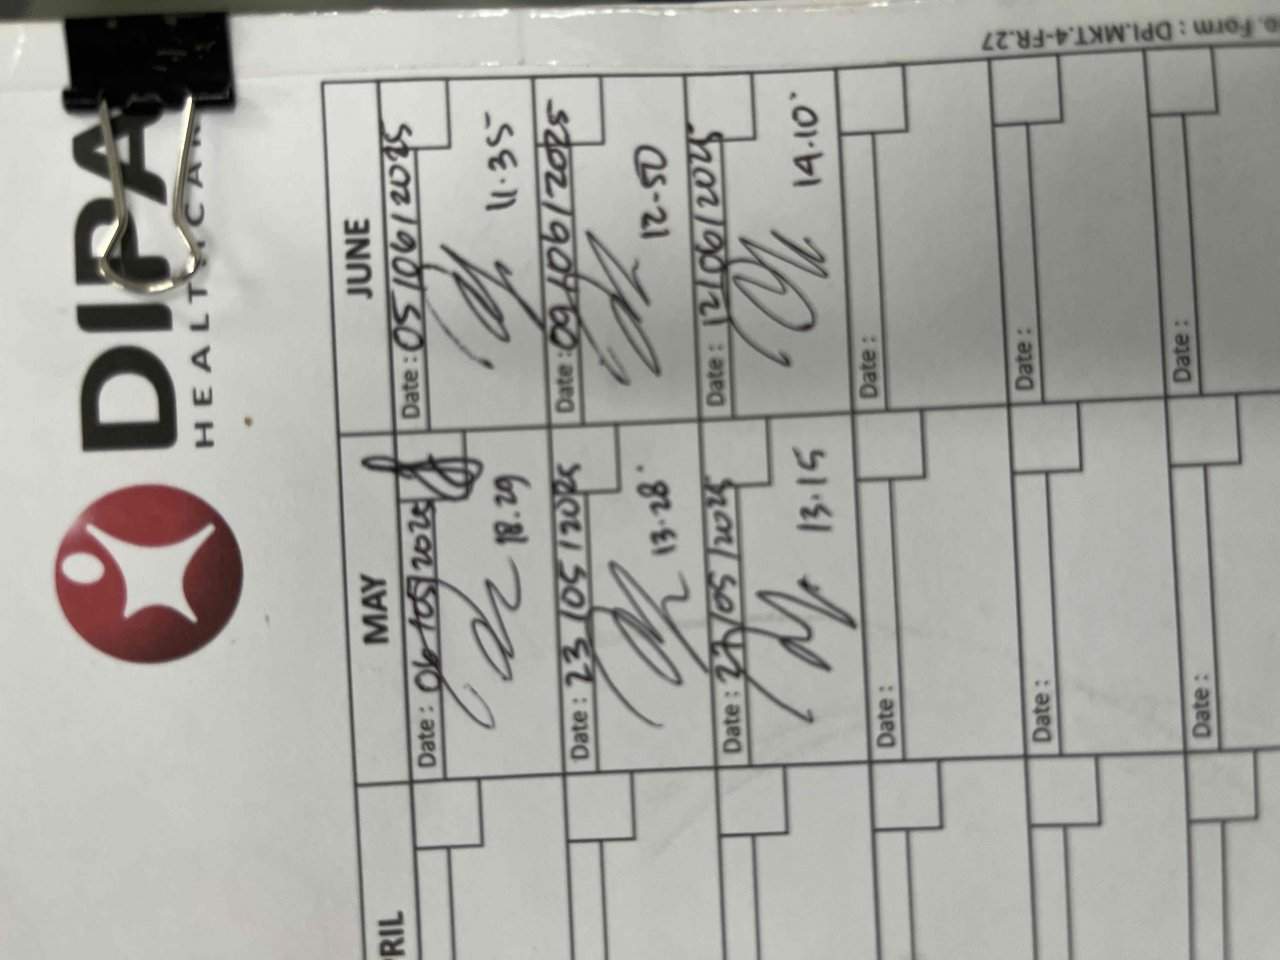 DIPA
HEALTHCAR
o. Form : DPI.MKT.4-FR.27
RIL
MAY
JUNE
Date : 06/05/2025
18.29
Date : 05/06/2025
11.35
Date : 23/05/2025
13.28
Date : 09/06/2025
12.50
Date : 27/05/2025
13.15
Date : 12/06/2025
14.10
Date :
Date :
Date :
Date :
Date :
Date :